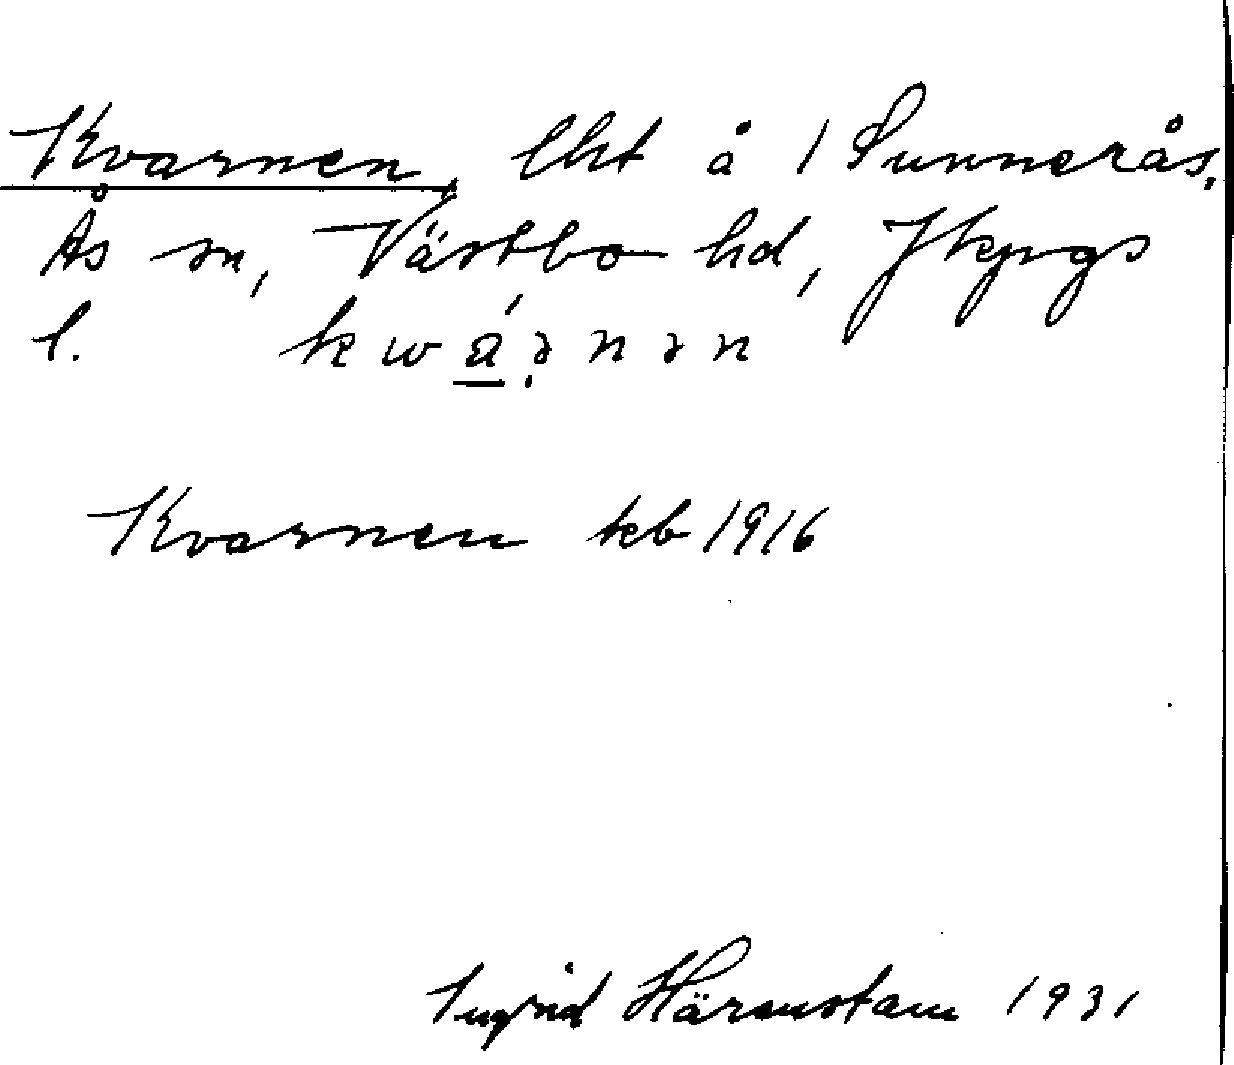 Kvarnen, lht å 1 Sunnerås,
Ås sn, Västbo hd, Jkpgs
l. kwáꝛnən
Kvarnen tkb 1916
Ingrid Härenstam 1931